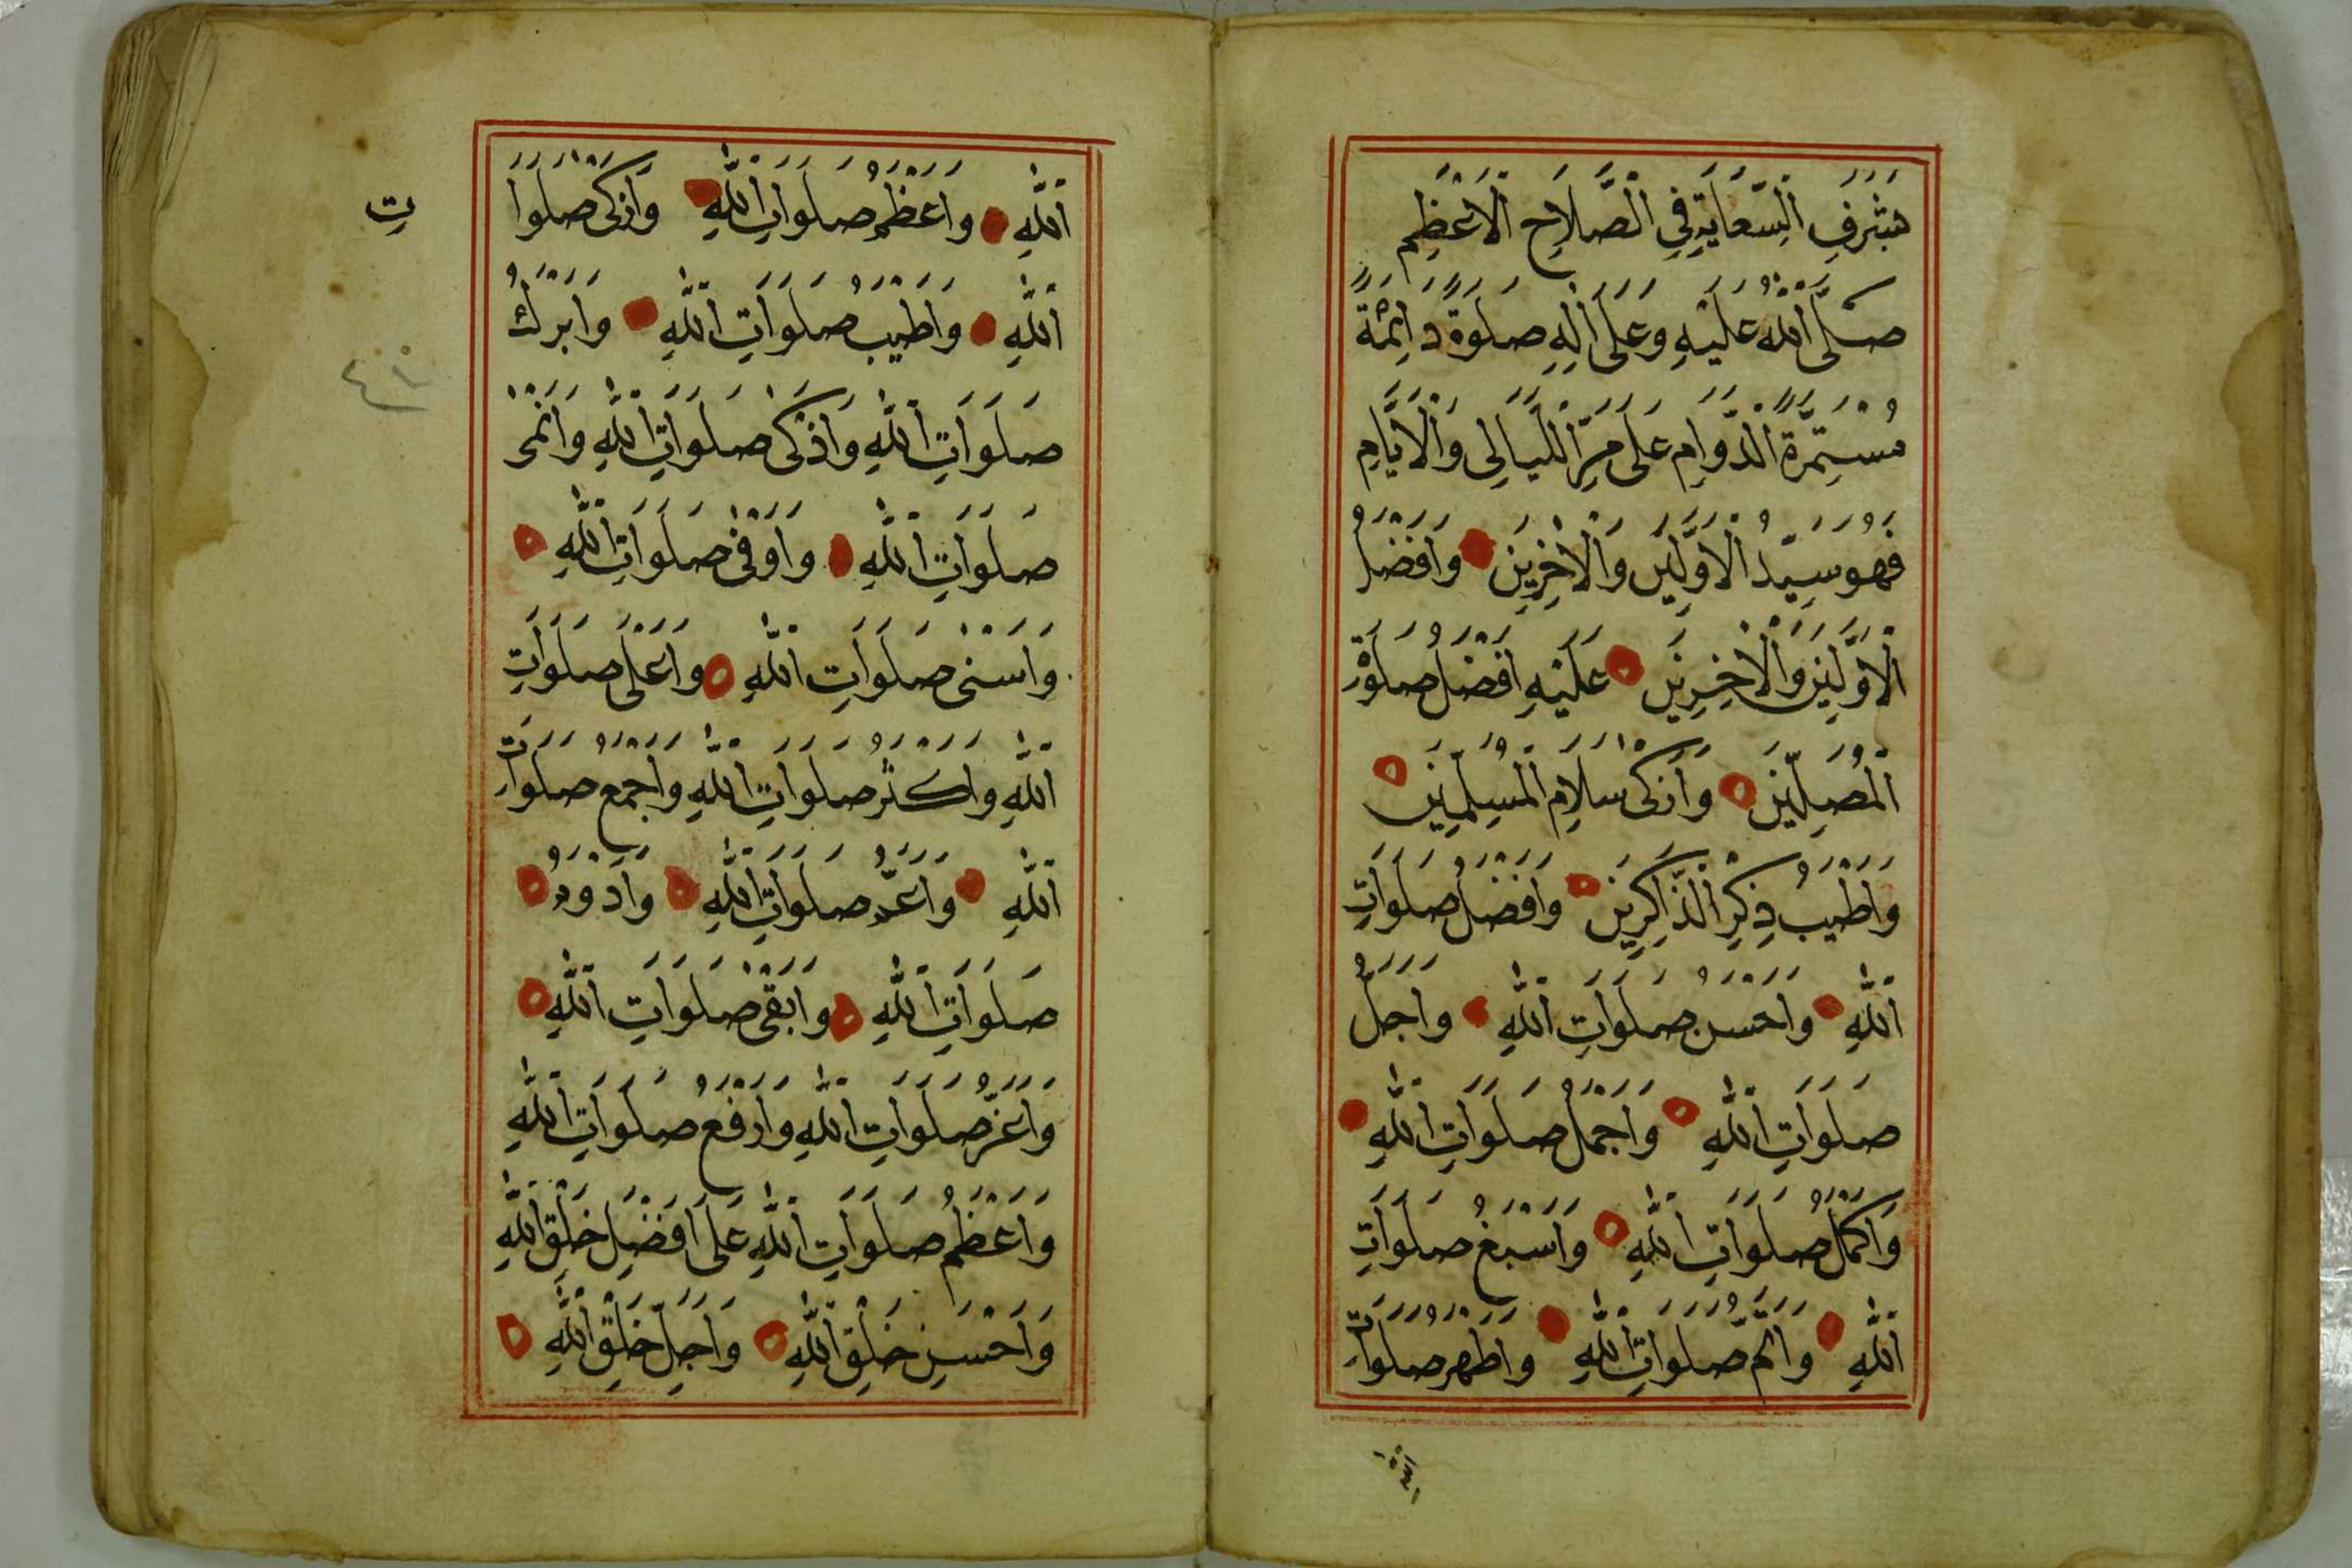 بِشَرَفِ السِّعَايَةِ فِي الصَّلَاحِ الْأَعْظَمِ
صَلَّى اللهُ عَلَيْهِ وَعَلَى اٰلِهِ صَلٰوةً دَائِمَةً
مُسْتَمِرَّةَ الدَّوَامِ عَلَى مَرِّ اللَّيَالِى وَالْأَيَّامِ
فَهُوَ سَيِّدُ الْأَوَّلِينَ وَالْاٰخِرِينَ وَأَفْضَلُ
الْأَوَّلِينَ وَالْاٰخِرِينَ عَلَيْهِ أَفْضَلُ صَلَوٰةِ
الْمُصَلِّينَ وَأَزْكَى سَلَامِ الْمُسَلِّمِينَ
وَأَطْيَبُ ذِكْرِ الذَّاكِرِينَ وَأَفْضَلُ صَلَوَاتِ
اللهِ وَأَحْسَنُ صَلَوَاتِ اللهِ وَأَجَلُّ
صَلَوَاتِ اللهِ وَأَجْمَلُ صَلَوَاتِ اللهِ
وَأَكْمَلُ صَلَوَاتِ اللهِ وَأَسْبَغُ صَلَوَاتِ
اللهِ وَأَتَمُّ صَلَوَاتِ اللهِ وَأَظْهَرُ صَلَوَاتِ
الله
اللهِ وَأَعْظَمُ صَلَوَاتِ اللهِ وَأَزْكَى صَلَوَا
تِ
اللهِ وَأَطْيَبُ صَلَوَاتِ اللهِ وَأَبْرَكُ
صَلَوَاتِ اللهِ وَأَذْكَى صَلَوَاتِ اللهِ وَأَنْمَى
صَلَوَاتِ اللهِ وَأَوْفَى صَلَوَاتِ اللهِ
وَأَسْنَى صَلَوَاتِ اللهِ وَأَعْلَى صَلَوَاتِ
اللهِ وَأَكْثَرُ صَلَوَاتِ اللهِ وَأَجْمَعُ صَلَوَاتِ
اللهِ وَأَعَمُّ صَلَوَاتِ اللهِ وَأَدْوَمُ
صَلَوَاتِ اللهِ وَأَبْقَى صَلَوَاتِ اللهِ
وَأَعَزُّ صَلَوَاتِ اللهِ وَأَرْفَعُ صَلَوَاتِ اللهِ
وَأَعْظَمُ صَلَوَاتِ اللهِ عَلَى أَفْضَلِ خَلْقِ اللهِ
وَأَحْسَنِ خَلْقِ اللهِ وَأَجَلِّ خَلْقِ اللهِ